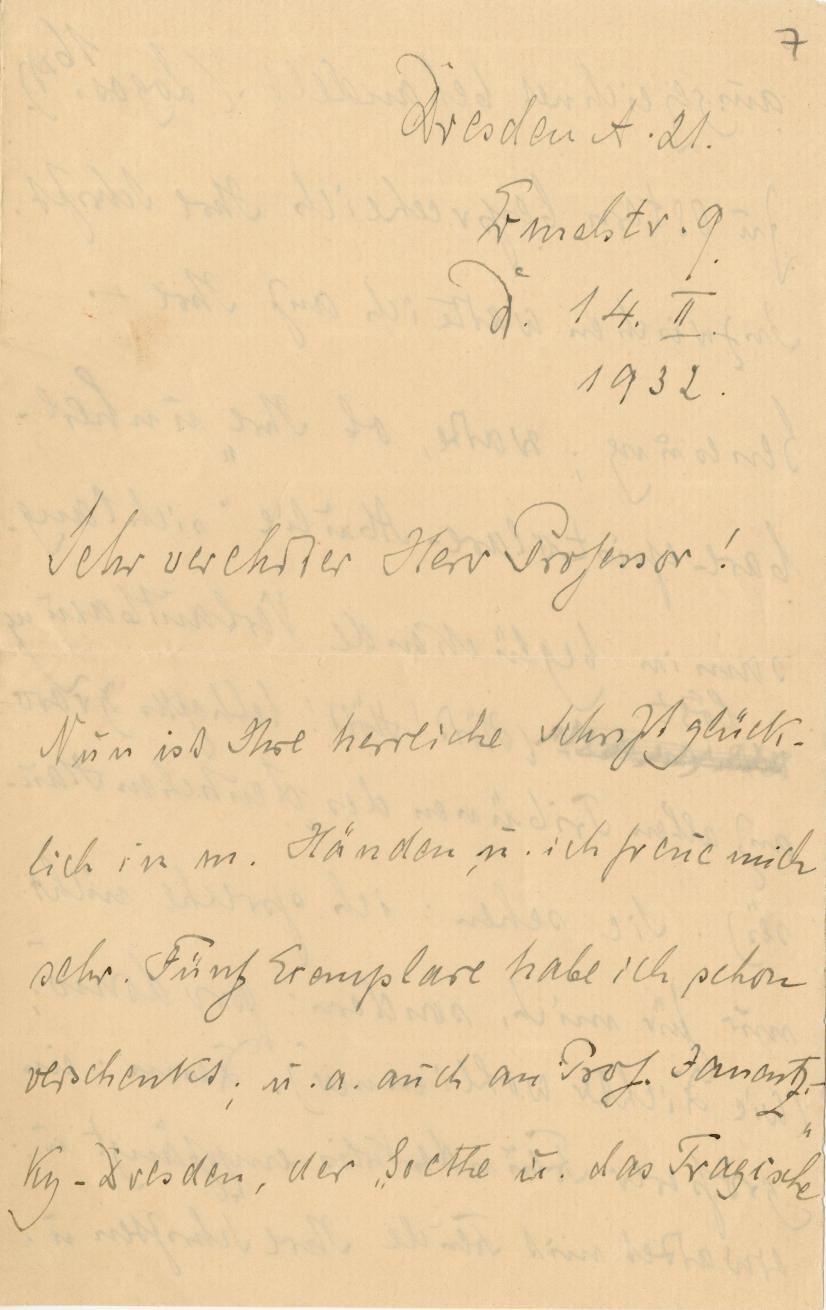 7
Dresden A. 21.
Ermelstr. 9.
d. 14. II.
1932.
Sehr verehrter Herr Professor!
Nun ist Ihre herrliche Schrift glück-
lich in m. Händen, u. ich freue mich
sehr. Fünf Exemplare habe ich schon
verschenkt, u. a. auch an Prof. Janentz-
ky-Dresden, der „Goethe u. das Tragische"